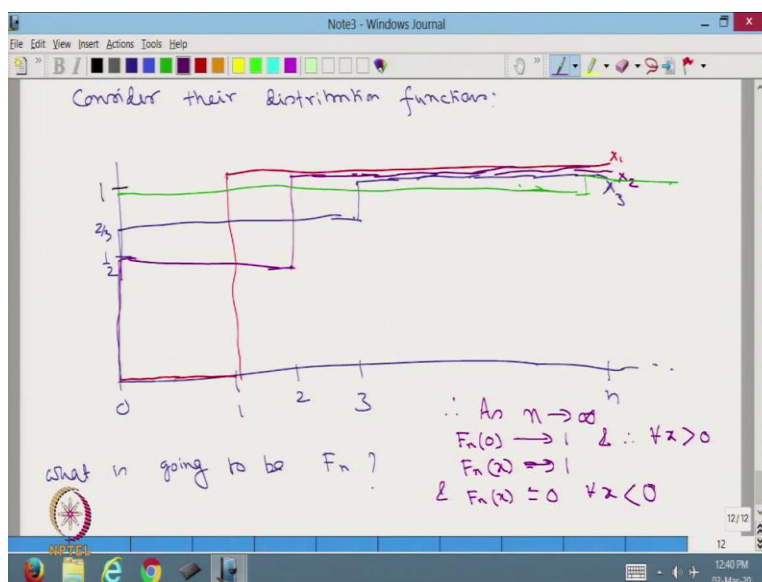 Note3 - Windows Journal
File Edit View Insert Actions Tools Help
B I
Consider their distribution functions:
x₁
x₂
x₃
1
2/3
1/2
0 1 2 3 n ...
∴ As n → ∞
Fₙ(0) → 1 & ∴ ∀x > 0
Fₙ(x) → 1
& Fₙ(x) = 0 ∀x < 0
what is going to be Fₙ ?
NPTEL
12/12
12
12:40 PM
02-Mar-20